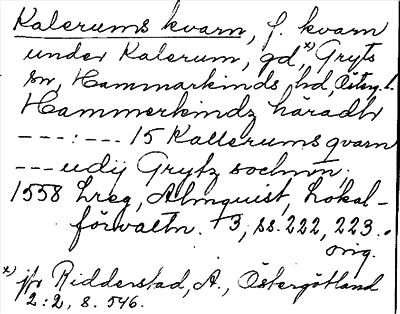 Kalerums kvarn, f. kvarn
under Kalerum, gd,ˣ⁾ Gryts
sn, Hammarkinds hd, Östergl.
Hammerkindz häradh
---:--- 15 Kallerums qvarn
--- udij Grytz sochnn;
1558 Lreg, Almquist, Lokal-
förvaltn. 3, ss. 222, 223.
orig.
x) jfr Ridderstad, A., Östergötland
2:2, s. 546.